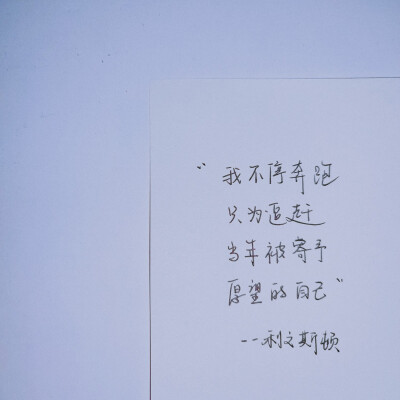 “我不停奔跑
只为追赶
当年被寄予
厚望的自己”
--利文斯顿